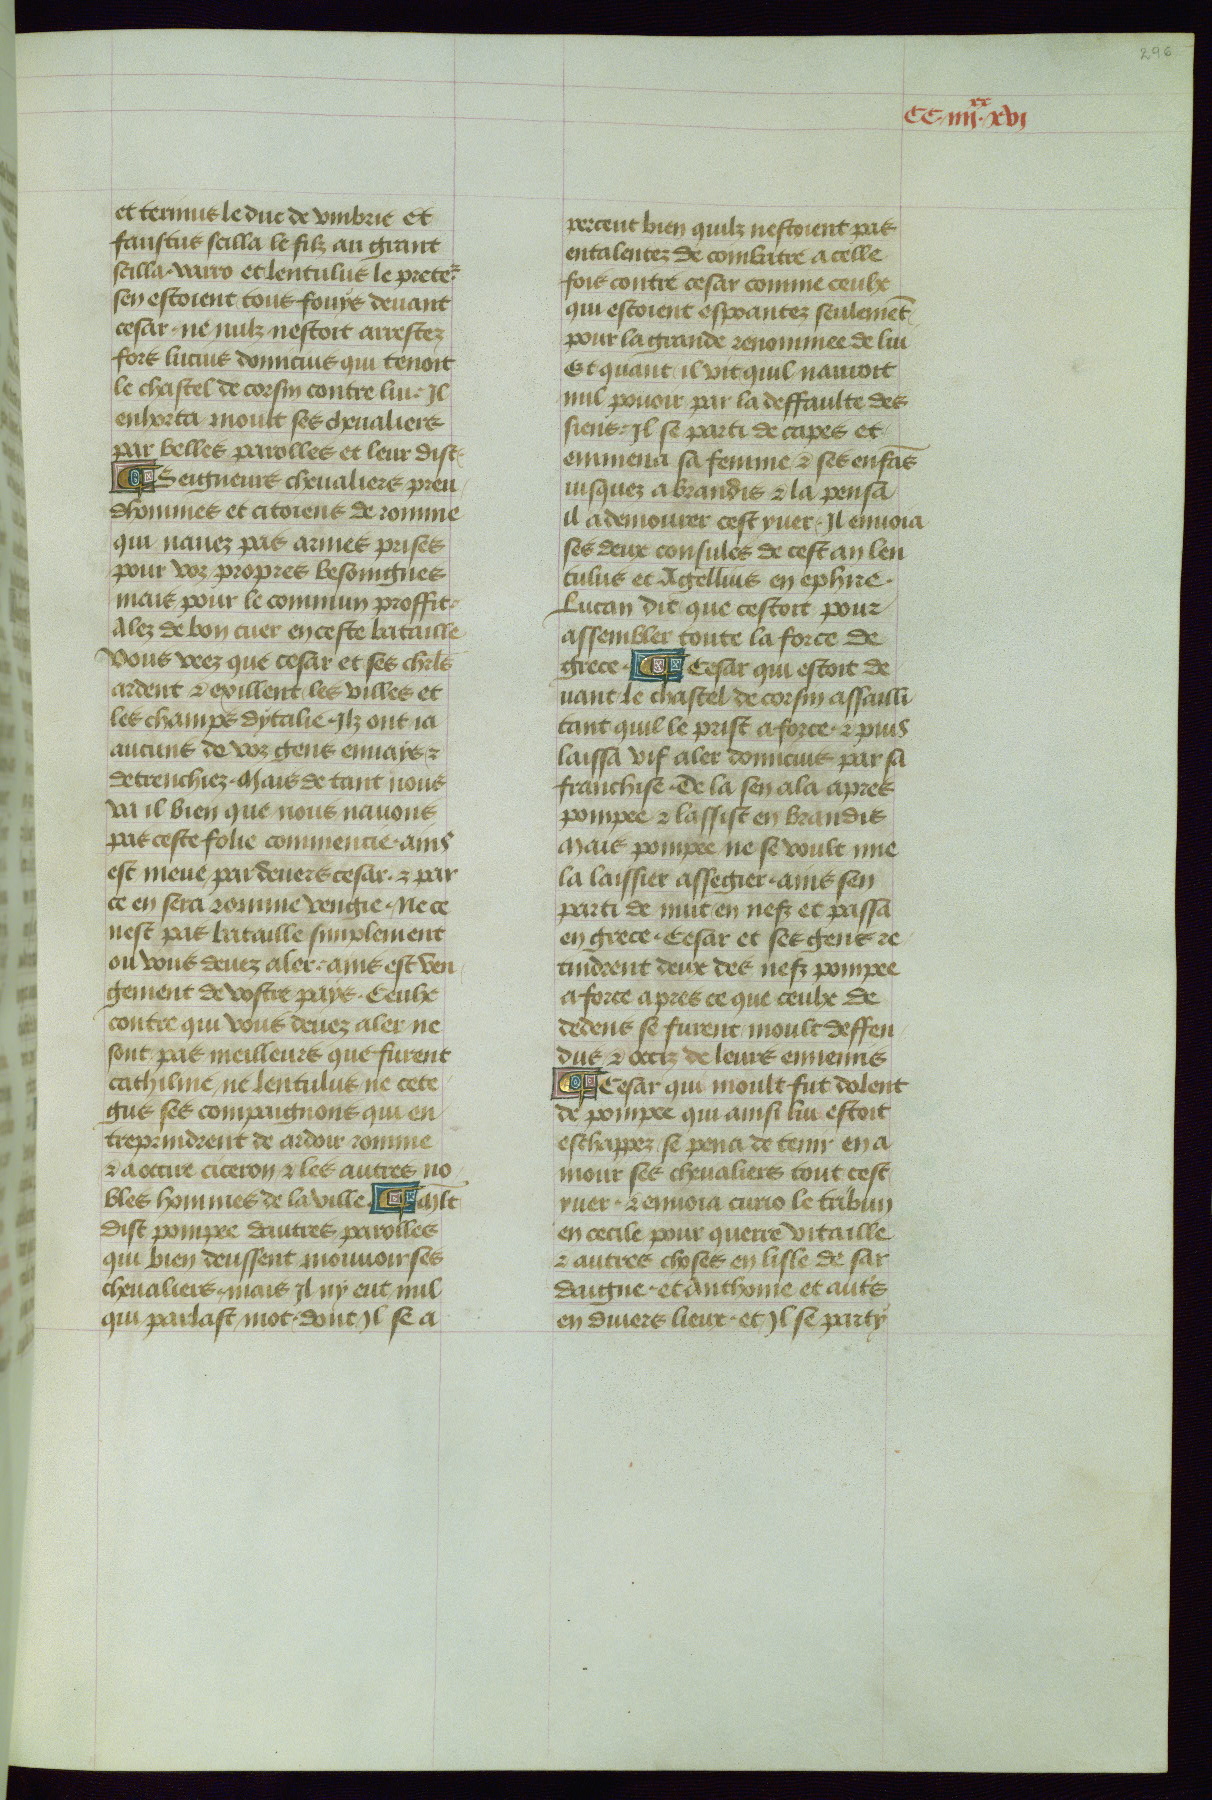 296
CC iiijxx xvj
et termus le duc de vmbrie et
faustus scilla le filz au grant
scilla · varro et lentulus le prete
sen estoient tous fouys deuant
cesar · ne nulz nestoit arrestez
fors lucius domicius qui tenoit
le chastel de corfin contre lui · Il
enhorta moult ses cheualiers
par belles parolles et leur dist
Seigneurs cheualiers preu
dhommes et citoiens de romme
qui nauez pas armes prises
pour voz propres besoingnes
mais pour le commun proffit ·
Alez de bon cuer en ceste bataille
vous veez que cesar et ses chrs
ardent ⁊ exillent les villes et
les champs dytalie · Ilz ont ia
aucuns de voz gens enuays ⁊
detrenchiez · Mais de tant nous
va il bien que nous nauons
pas ceste folie commencie · ains
est meue par deuers cesar · ⁊ par
ce en sera romme vengie · Ne ce
nest pas bataille simplement
ou vous deuez aler · ains est ven
gement de vostre pays · Ceulx
contre qui vous deuez aler ne
sont pas meilleurs que furent
cathiline ne lentulus ne cete
gus ses compaignons qui en
treprindrent de ardoir romme
⁊ a occire ciceron ⁊ les autres no
bles hommes de la ville Mlt
dist pompee dautres parolles
qui bien deussent mouuoir ses
cheualiers · mais Il ny eut nul
qui parlast mot · dont Il se a
percent bien quilz nestoient pas
entalentez de combatre a celle
fois contre cesar comme ceulx
qui estoient espoantez seulemēt
pour la grande renommee de lui
Et quant il vit quil nauoit
nul pouoir par la deffaulte des
siens · Il se parti de capes et
emmena sa femme ⁊ ses enfās
iusquez a brandis ⁊ la pensa
il a demourer cest yuer · Il enuoia
ses deux consules de cest an len
tulus et Agellius en ephire ·
Lucan dit que cestoit pour
assembler toute la force de
grece · Cesar qui estoit de
uant le chastel de corfin assailli
tant quil le prist a force · ⁊ puis
laissa vif aler domicius par sa
franchise · De la sen ala apres
pompee ⁊ lassist en brandis
Mais pompee ne se voult mie
la laissier assegier · ains sen
parti de nuit en nefz et passa
en grece · Cesar et ses gens re
tindrent deux des nefz pompee
a force apres ce que ceulx de
dedens se furent moult deffen
dus ⁊ occiz de leurs ennemis
Cesar qui moult fut dolent
de pompee qui ainsi lui estoit
eschappez se pena de tenir en a
mour ses cheualiers tout cest
yuer · ⁊ enuoia curio le tribun
en cecile pour querre vitaille
⁊ autres choses en lisle de sar
daigne · et anthoine et autres
en diuers lieux · et Il se party